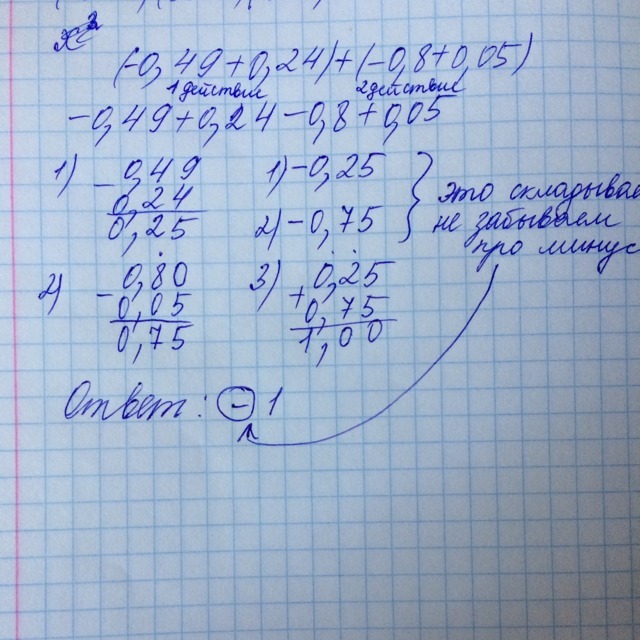 (-0,49+0,24)+(-0,8+0,05)
1 действие 2 действие
-0,49+0,24-0,8+0,05
1) -0,49 1) -0,25
0,24
0,25 2) -0,75
это складываем
не забываем
про минус
2) -0,80 3) +0,25
0,05 0,75
0,75 1,00
Ответ: - 1